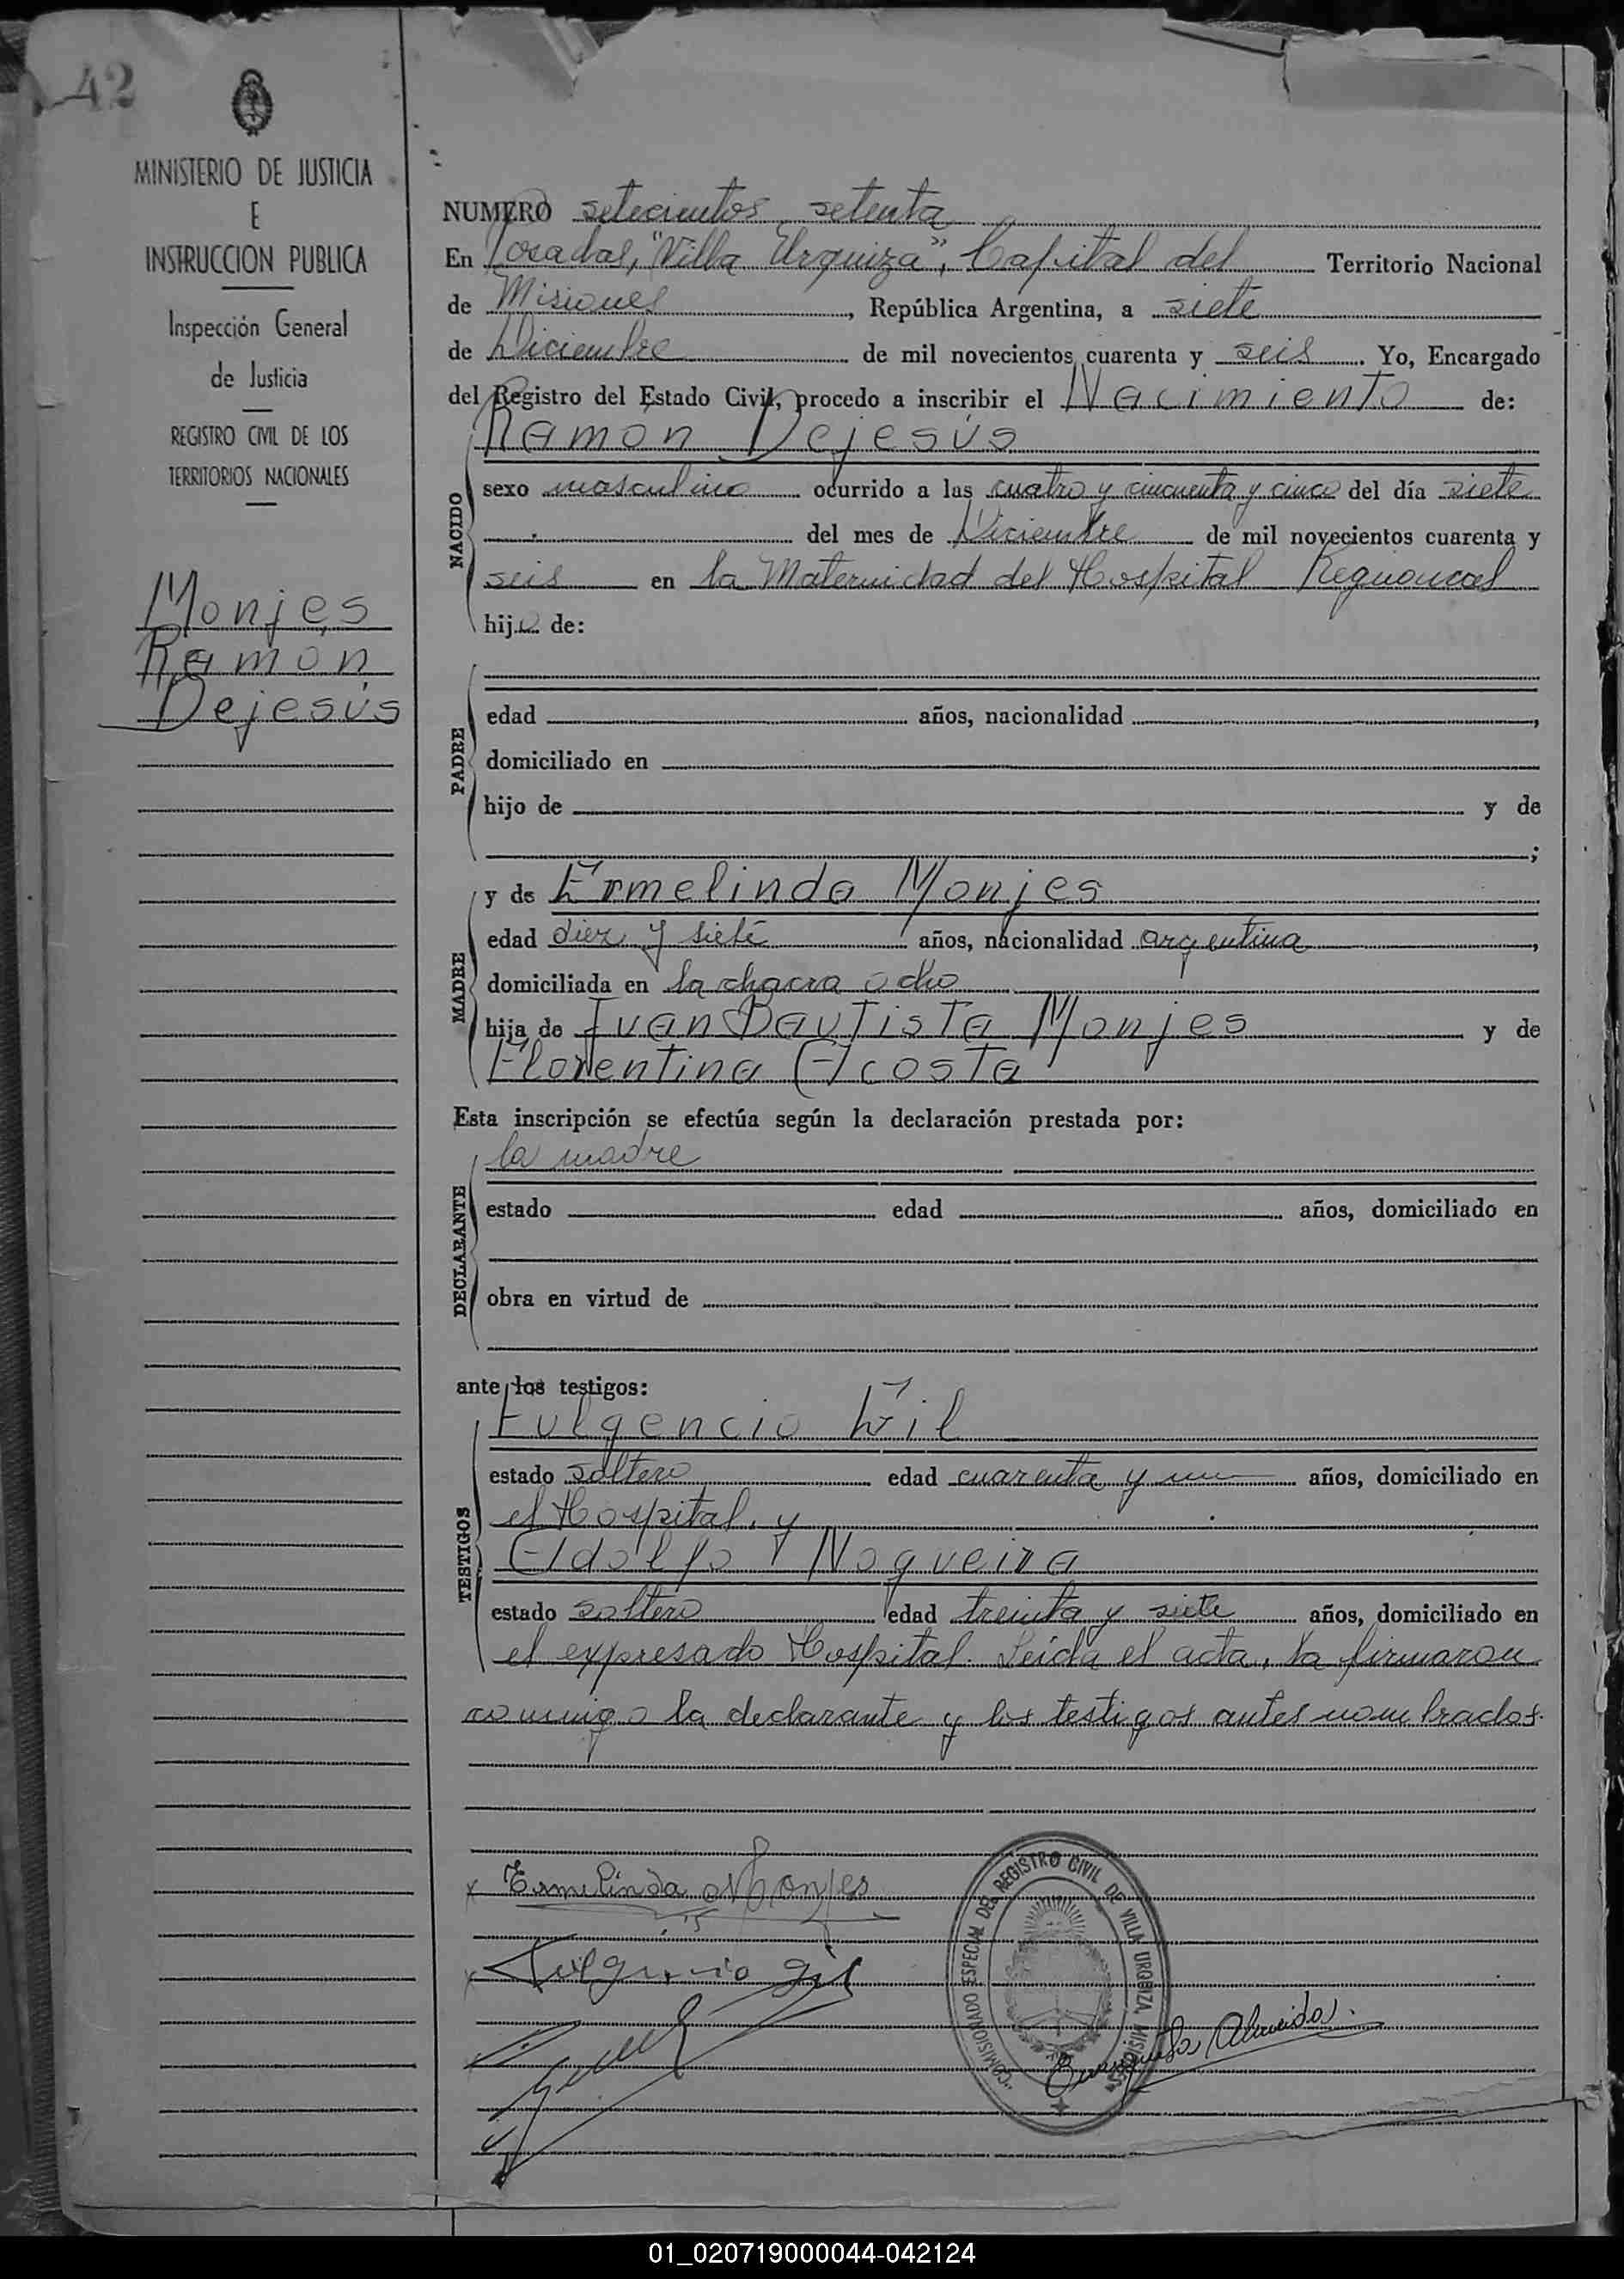 42
MINISTERIO DE JUSTICIA
E
INSTRUCCION PUBLICA
Inspección General
de Justicia
REGISTRO CIVIL DE LOS
TERRITORIOS NACIONALES
Monjes
Ramón
Dejesús
NUMERO setecientos setenta
En Posadas, "Villa Urquiza", Capital del Territorio Nacional
de Misiones, República Argentina, a siete
de Diciembre de mil novecientos cuarenta y seis. Yo, Encargado
del Registro del Estado Civil, procedo a inscribir el Nacimiento de:
Ramón Dejesús
NACIDO
sexo masculino ocurrido a las cuatro y cincuenta y cinco del día siete
del mes de Diciembre de mil novecientos cuarenta y
seis en la Maternidad del Hospital Regional
hijo de:
PADRE
edad años, nacionalidad ,
domiciliado en
hijo de y de
;
MADRE
y de Ermelinda Monjes
edad diez y siete años, nacionalidad argentina,
domiciliada en la chacra ocho
hija de Juan Bautista Monjes y de
Florentina Acosta
Esta inscripción se efectúa según la declaración prestada por:
DECLARANTE
la madre
estado edad años, domiciliado en
obra en virtud de
ante los testigos:
TESTIGOS
Fulgencio Gil
estado soltero edad cuarenta y un años, domiciliado en
el Hospital, y
Adolfo Y Nogueira
estado soltero edad treinta y siete años, domiciliado en
el expresado Hospital. Leida el acta, la firmaron
conmigo la declarante y los testigos antes nombrados.
Ermelinda Monjes
Fulgencio Gil
COMISIONADO ESPECIAL DEL REGISTRO CIVIL DE VILLA URQUIZA, MISIONES
Almeida
01_020719000044-042124